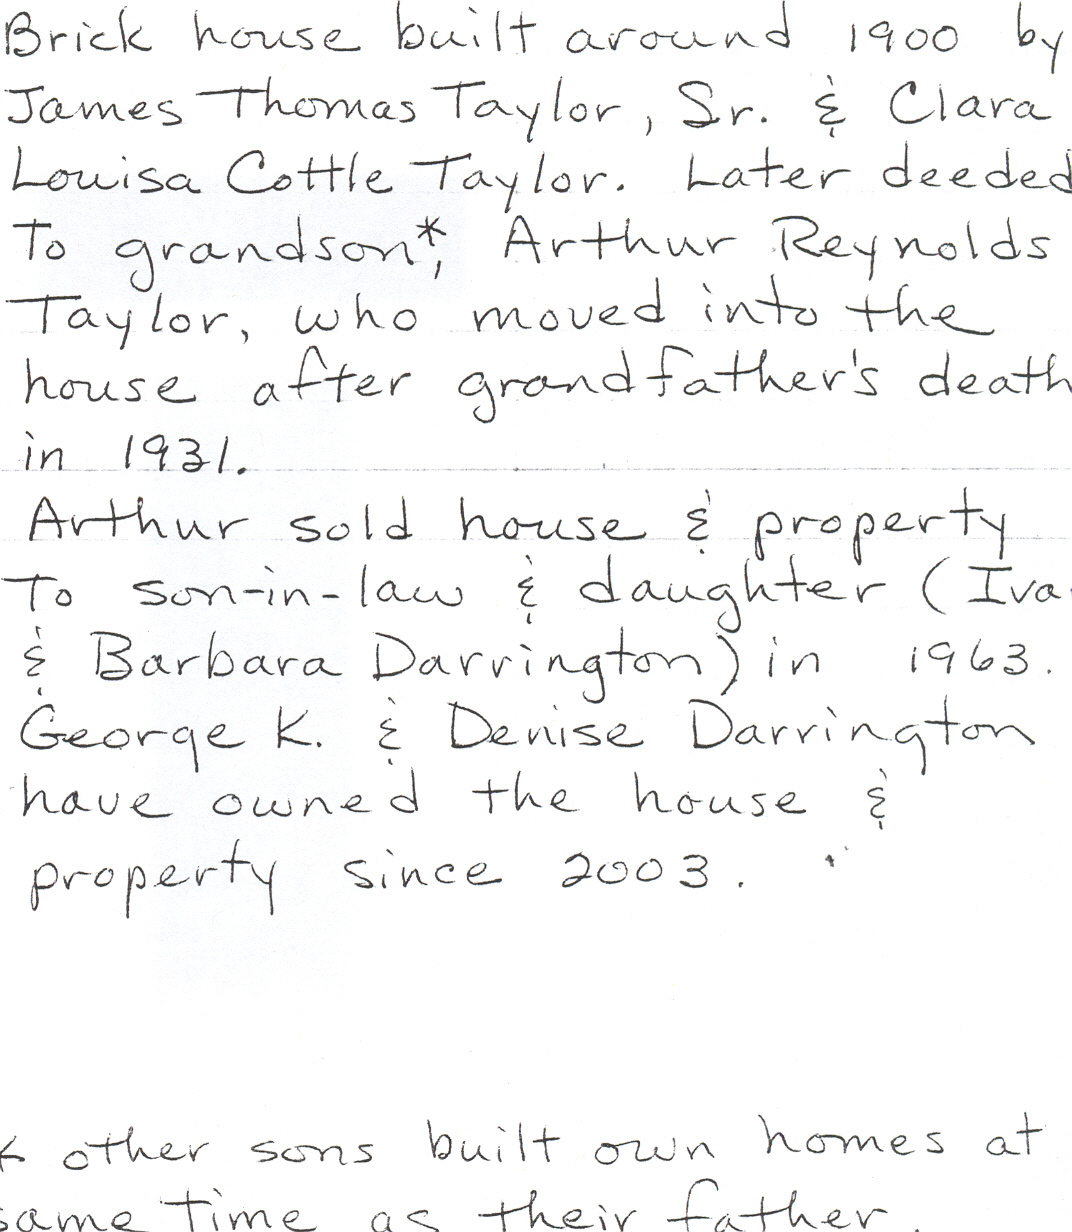 Brick house built around 1900 by
James Thomas Taylor, Sr. & Clara
Louisa Cottle Taylor. Later deeded
To grandson*, Arthur Reynolds
Taylor, who moved into the
house after grandfather's death
in 1931.
Arthur sold house & property
To son-in-law & daughter (Iva
& Barbara Darrington) in 1963.
George K. & Denise Darrington
have owned the house &
property since 2003.
* other sons built own homes at
same time as their father.